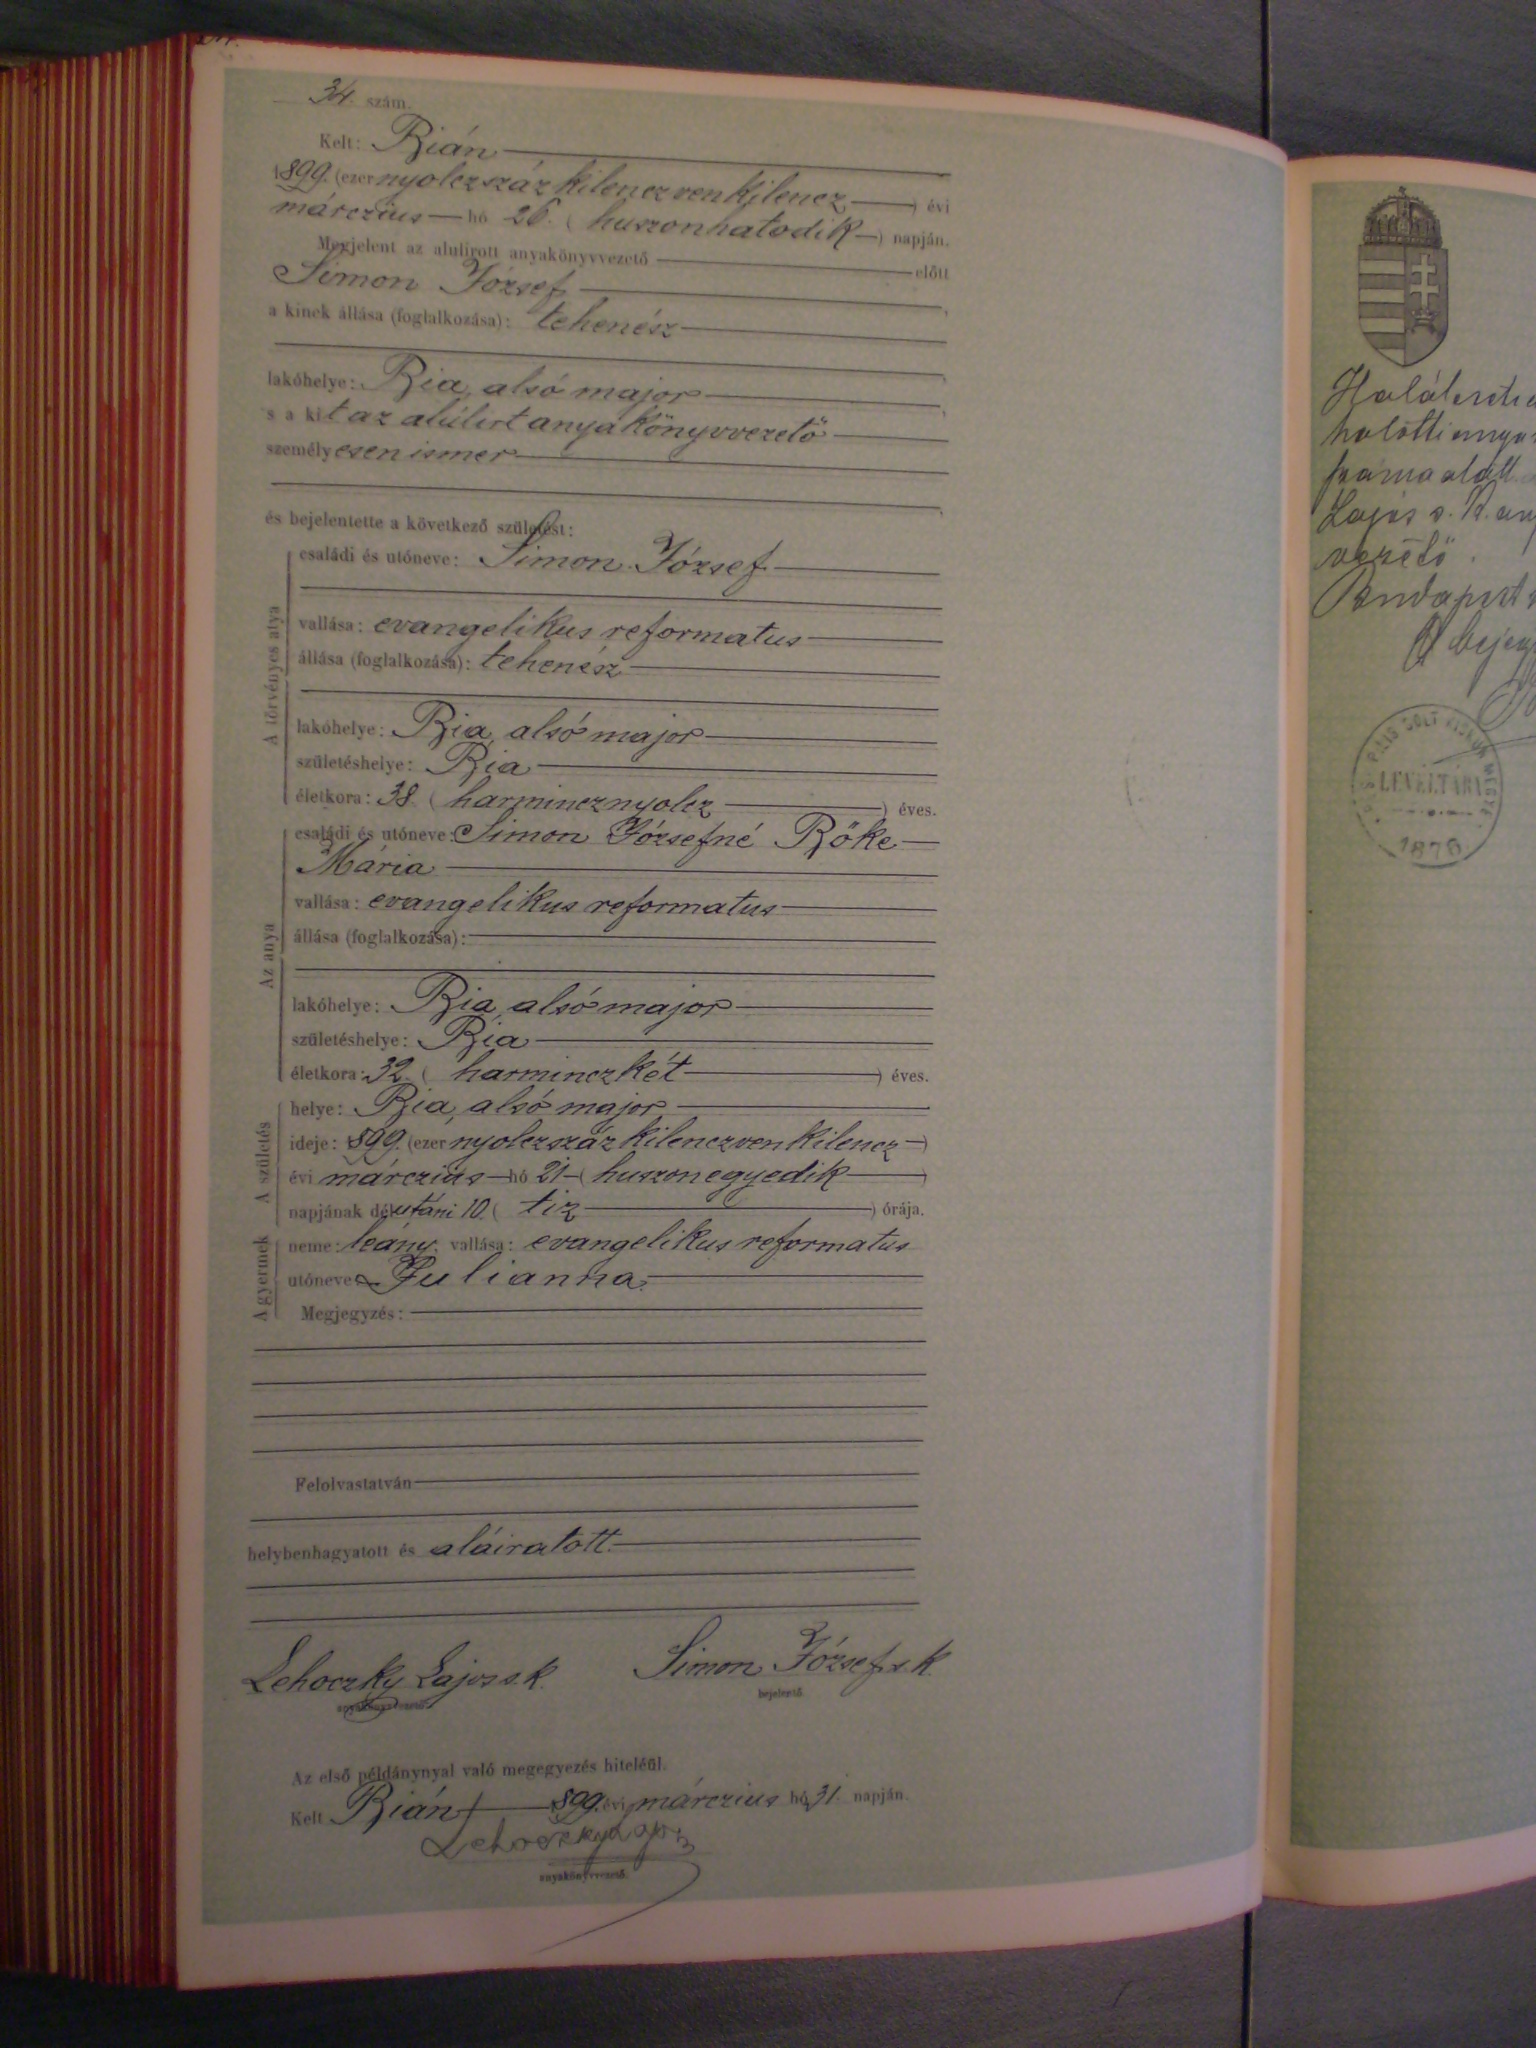 34. szám.
Kelt: Bián
1899. (ezernyolczszáz kilenczven kilencz) évi
márczius hó 26. (huszonhatodik) napján.
Megjelent az alulirott anyakönyvvezető előtt
Simon József,
a kinek állása (foglalkozása): tehenész
lakóhelye: Bia, alsó major,
s a kit az alúlirt anyakönyvvezető
személyesen ismer
és bejelentette a következő születést:
A törvényes atya
családi és utóneve: Simon József
vallása: evangelikus reformatus
állása (foglalkozása): tehenész
lakóhelye: Bia, alsó major
születéshelye: Bia
életkora: 38. (harmincznyolcz) éves.
Az anya
családi és utóneve: Simon Józsefné Bőke
Mária
vallása: evangelikus reformatus
állása (foglalkozása):
lakóhelye: Bia, alsó major
születéshelye: Bia
életkora: 32. (harminczkét) éves.
A születés
helye: Bia, alsó major
ideje: 1899. (ezernyolczszáz kilenczven kilencz)
évi márczius hó 21 (huszonegyedik)
napjának délutáni 10. (tiz) órája.
A gyermek
neme: leány. vallása: evangelikus reformatus
utóneve: Julianna.
Megjegyzés:
Felolvastatván
helybenhagyatott és aláiratott.
Lehoczky Lajos s.k. Simon József s.k.
anyakönyvvezető bejelentő
Az első példánynyal való megegyezés hiteléül.
Kelt Bián, 1899. évi márczius hó 31. napján.
Lehoczky Lajos
anyakönyvvezető.
halotti
alatt
Lajos s. k.
vezető.
Budapest
A bejegy
PEST PILIS SOLT KISKUN MEGYE
LEVÉLTÁRA
1876